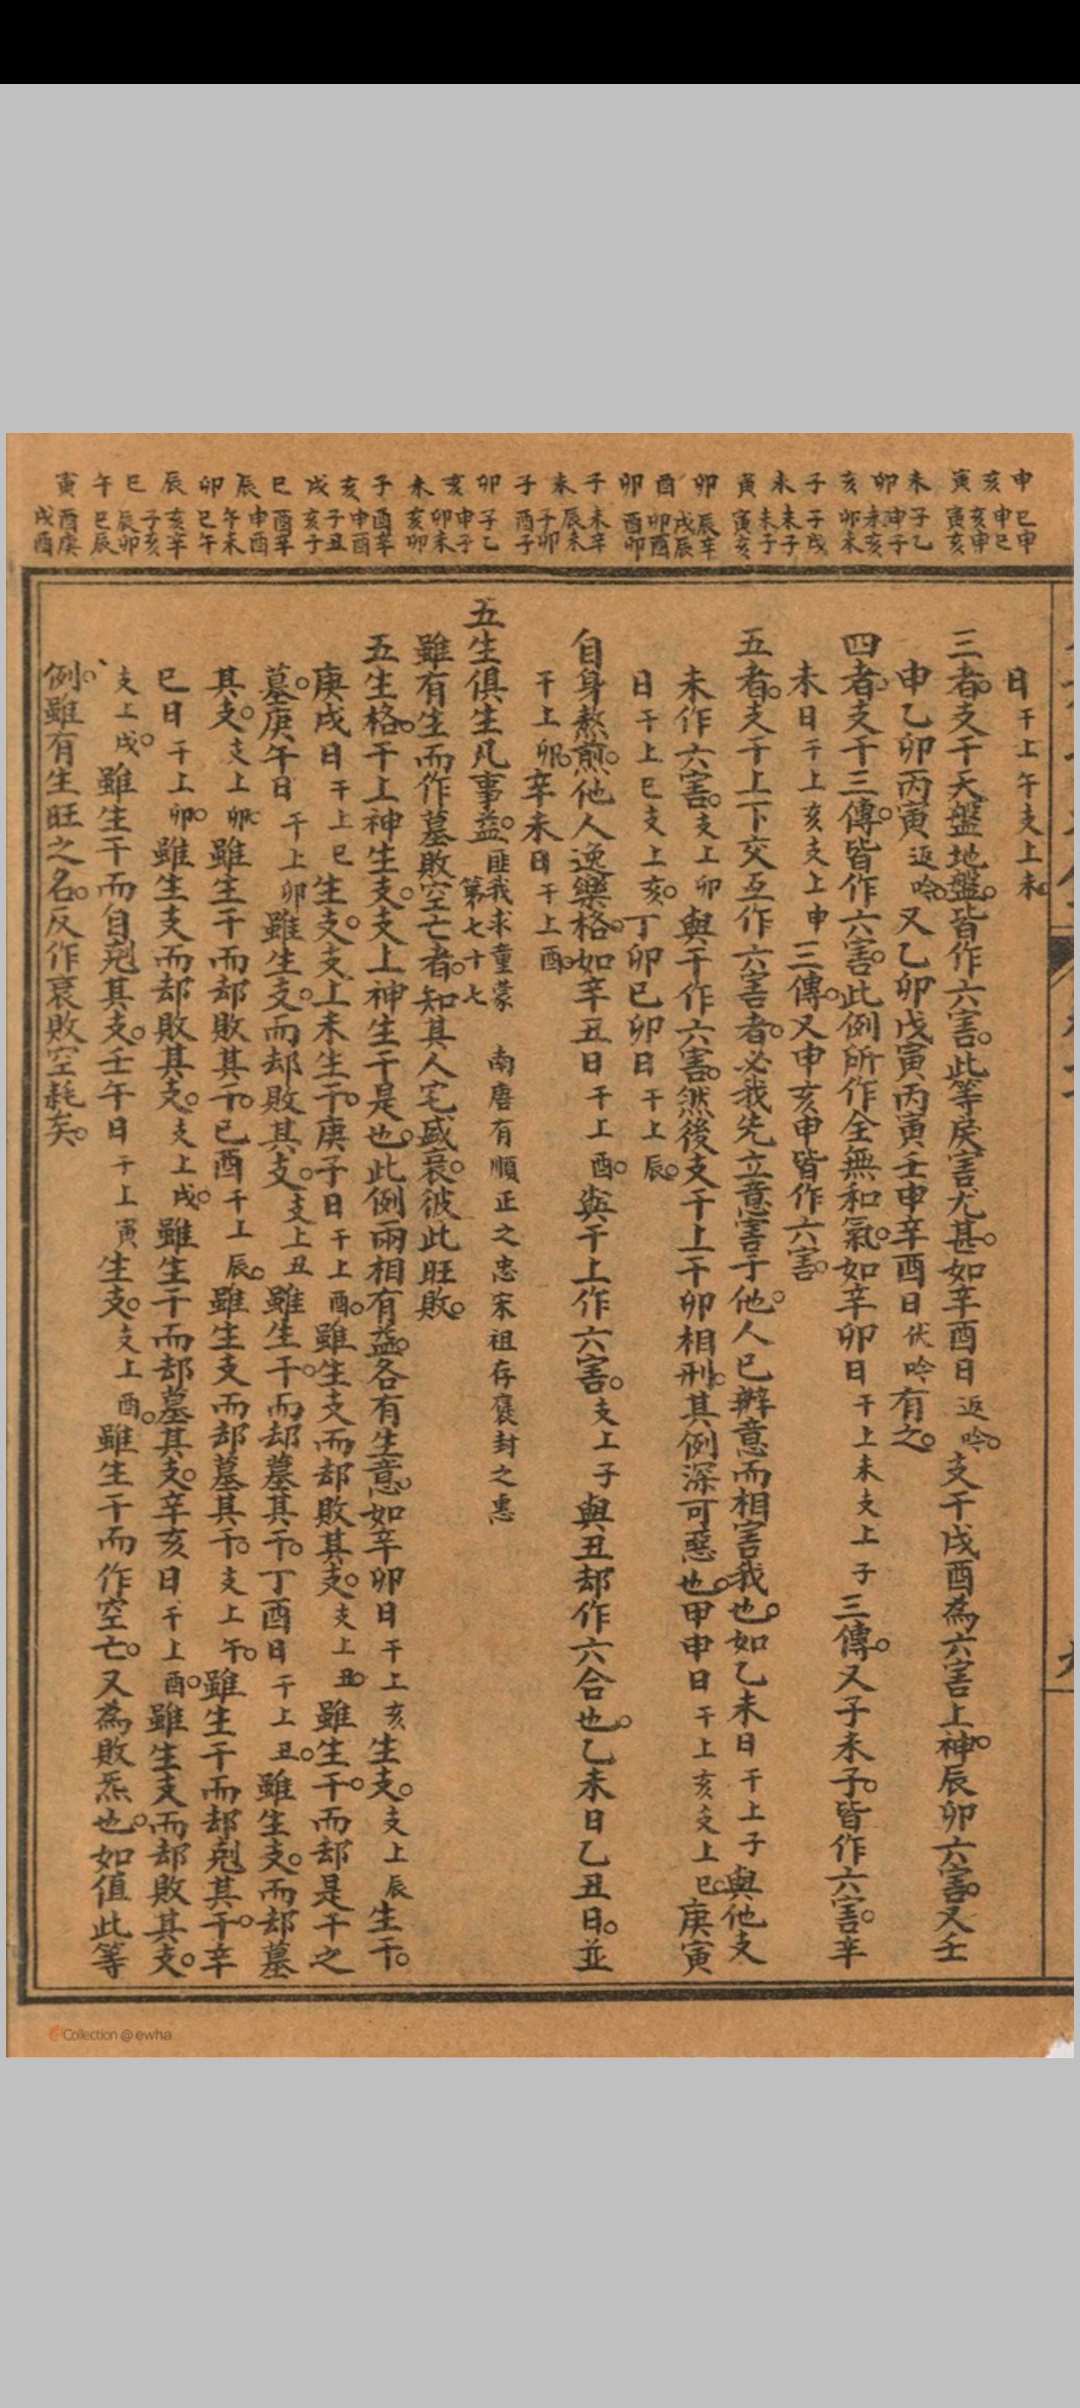 申亥寅 未卯亥 子未寅 卯酉卯 子未子 卯亥未 子亥戌 巳辰卯 辰巳午 寅
日干上午支上未
三者支干天盤地盤皆作六害此等戾害尤甚如辛酉日返吟支干戌酉為六害上神辰卯六害又壬
申乙卯丙寅返吟又乙卯戊寅丙寅壬申辛酉日伏吟有之
四者支干三傳皆作六害此例所作全無和氣如辛卯日干上未支上子三傳又子未子皆作六害辛
未日干上亥支上申三傳又申亥申皆作六害
五者支干上下交互作六害者必我先立意害于他人已辦意而相害我也如乙未日干上子與他支
未作六害支上卯與干作六害然後支干上干卯相刑其例深可惡也甲申日干上亥支上巳庚寅
日干上巳支上亥丁卯己卯日干上辰
自身熬煎他人逸樂格如辛丑日干上酉與干上作六害支上子與丑却作六合也乙未日乙丑日並
干上卯辛未日干上酉
五生俱生凡事益匪我求童蒙第七十七 南唐有順正之忠宋祖存褒封之惠
雖有生而作墓敗空亡者知其人宅盛衰彼此旺敗
五生格干上神生支支上神生干是也此例兩相有益各有生意如辛卯日干上亥生支支上辰生干
庚戌日干上巳生支支上未生干庚子日干上酉雖生支而却敗其支支上丑雖生干而却是干之
墓庚午日干上卯雖生支而却敗其支支上丑雖生干而却墓其干丁酉日干上丑雖生支而却墓
其支支上卯雖生干而却敗其干己酉干上辰雖生支而却墓其干支上午雖生干而却剋其干辛
巳日干上卯雖生支而却敗其支支上戌雖生干而却墓其支辛亥日干上酉雖生支而却敗其支
支上戌雖生干而自剋其支壬午日干上寅生支支上酉雖生干而作空亡又為敗炁也如值此等
例雖有生旺之名反作衰敗空耗矣
Collection @ ewha